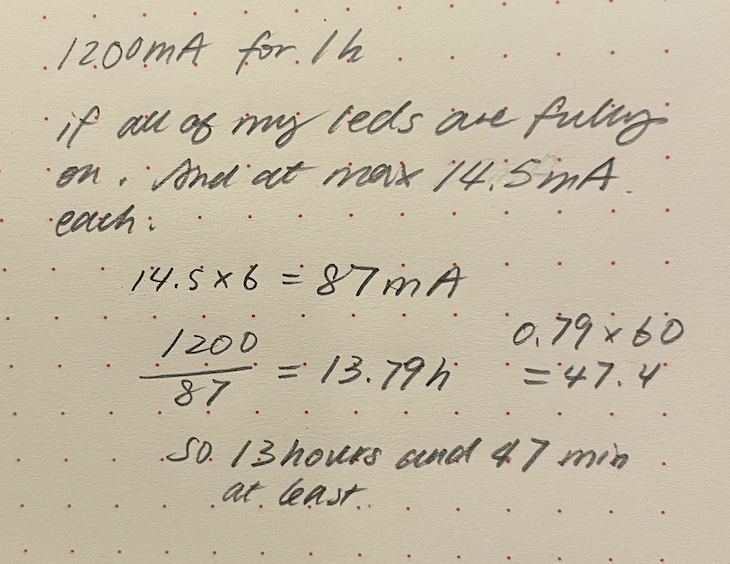 1200mA for 1h
if all of my leds are fully
on. And at max 14.5mA.
each.
14.5 x 6 = 87mA
1200
87
= 13.79h
0.79 x 60
= 47.4
so 13 hours and 47 min
at least.